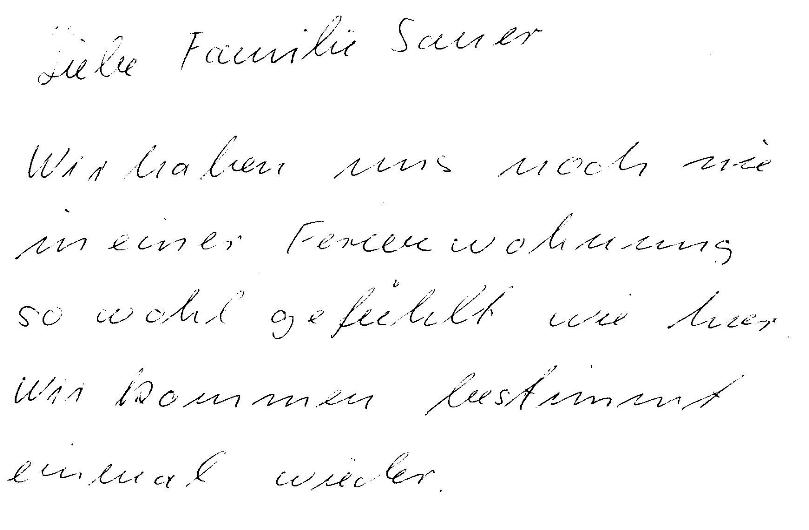 Liebe Familie Sauer
Wir haben uns noch nie
in einer Ferienwohnung
so wohl gefühlt wie hier.
Wir kommen bestimmt
einmal wieder.